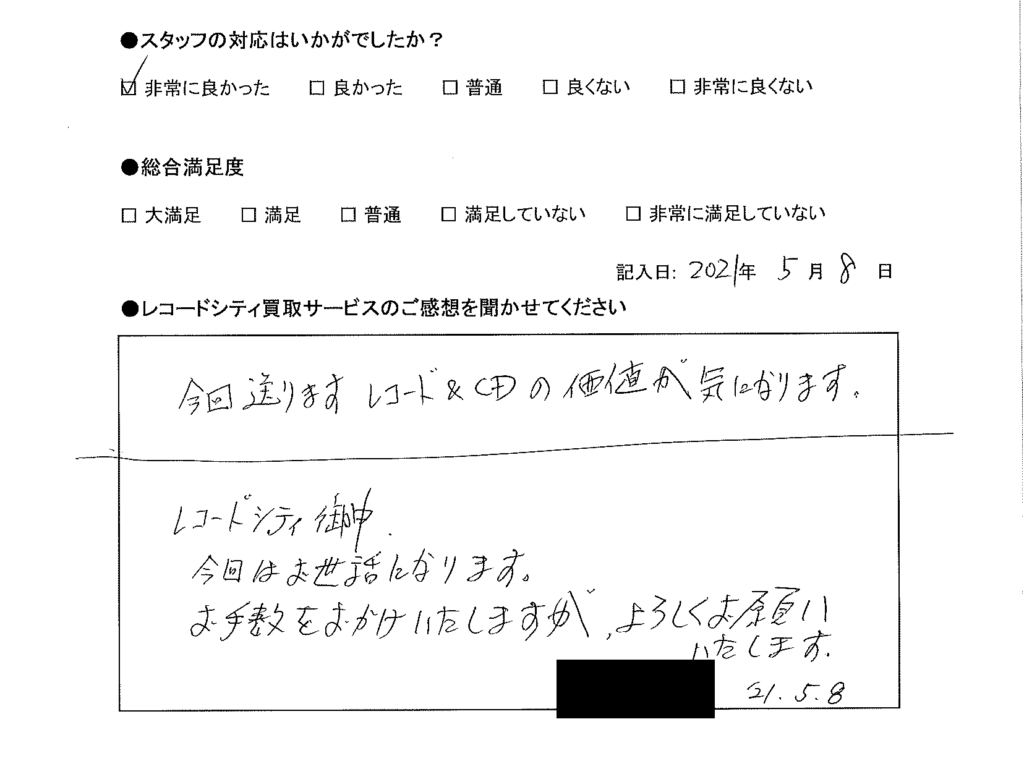 ●スタッフの対応はいかがでしたか？
☑ 非常に良かった □ 良かった □ 普通 □ 良くない □ 非常に良くない
●総合満足度
□ 大満足 □ 満足 □ 普通 □ 満足していない □ 非常に満足していない
記入日: 2021年 5月 8日
●レコードシティ買取サービスのご感想を聞かせてください
今回送ります レコード & CDの価値が気になります。
レコードシティ御中.
今回はお世話になります。
お手数をおかけいたしますが、よろしくお願い
いたします.
'21.5.8